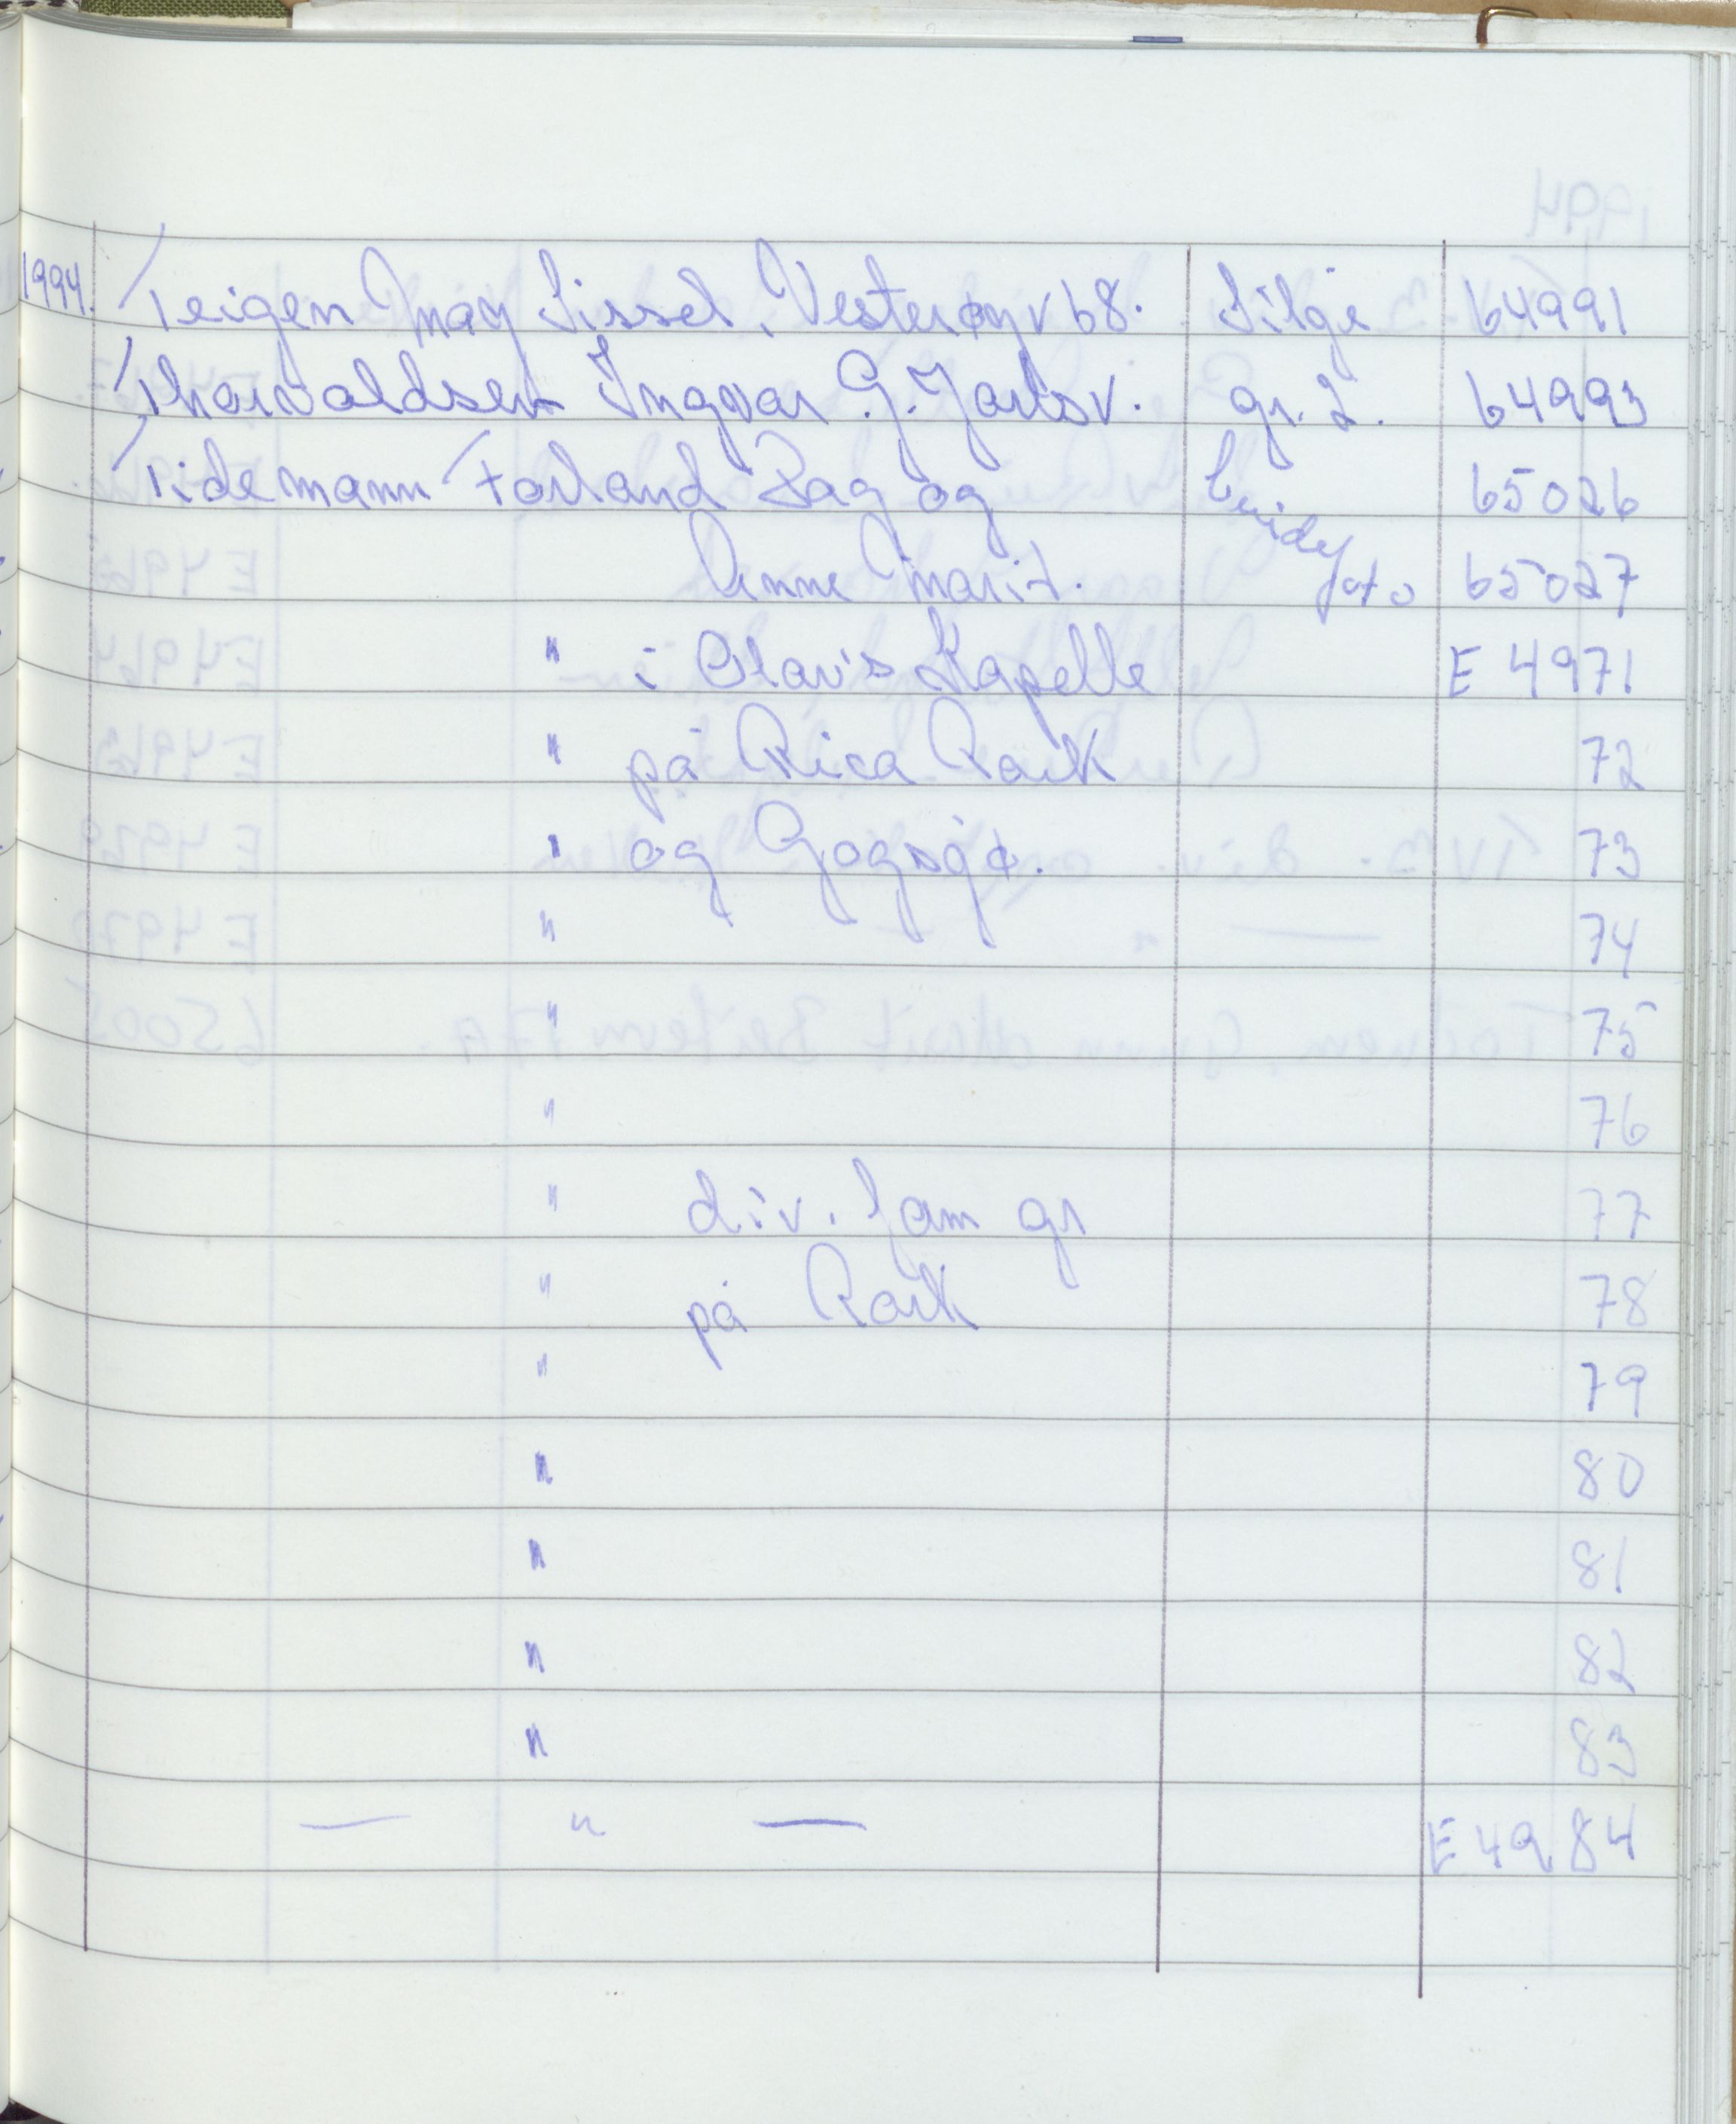 1994. Teigen May Sissel. Vesterøyv 68. Silje 64991
Thorvaldsen Ingvar G. Jarlsv. gr. 2. 64993
Tidemann / Forland Dag og 65026
Anne Marit. foto 65027
" i Olav's Kapelle E 4971
" på Rica Park 72
" og Gogsjø. 73
" 74
" 75
" 76
" div. fam gr 77
" på Park 78
" 79
" 80
" 81
" 82
" 83
— " — E 4984